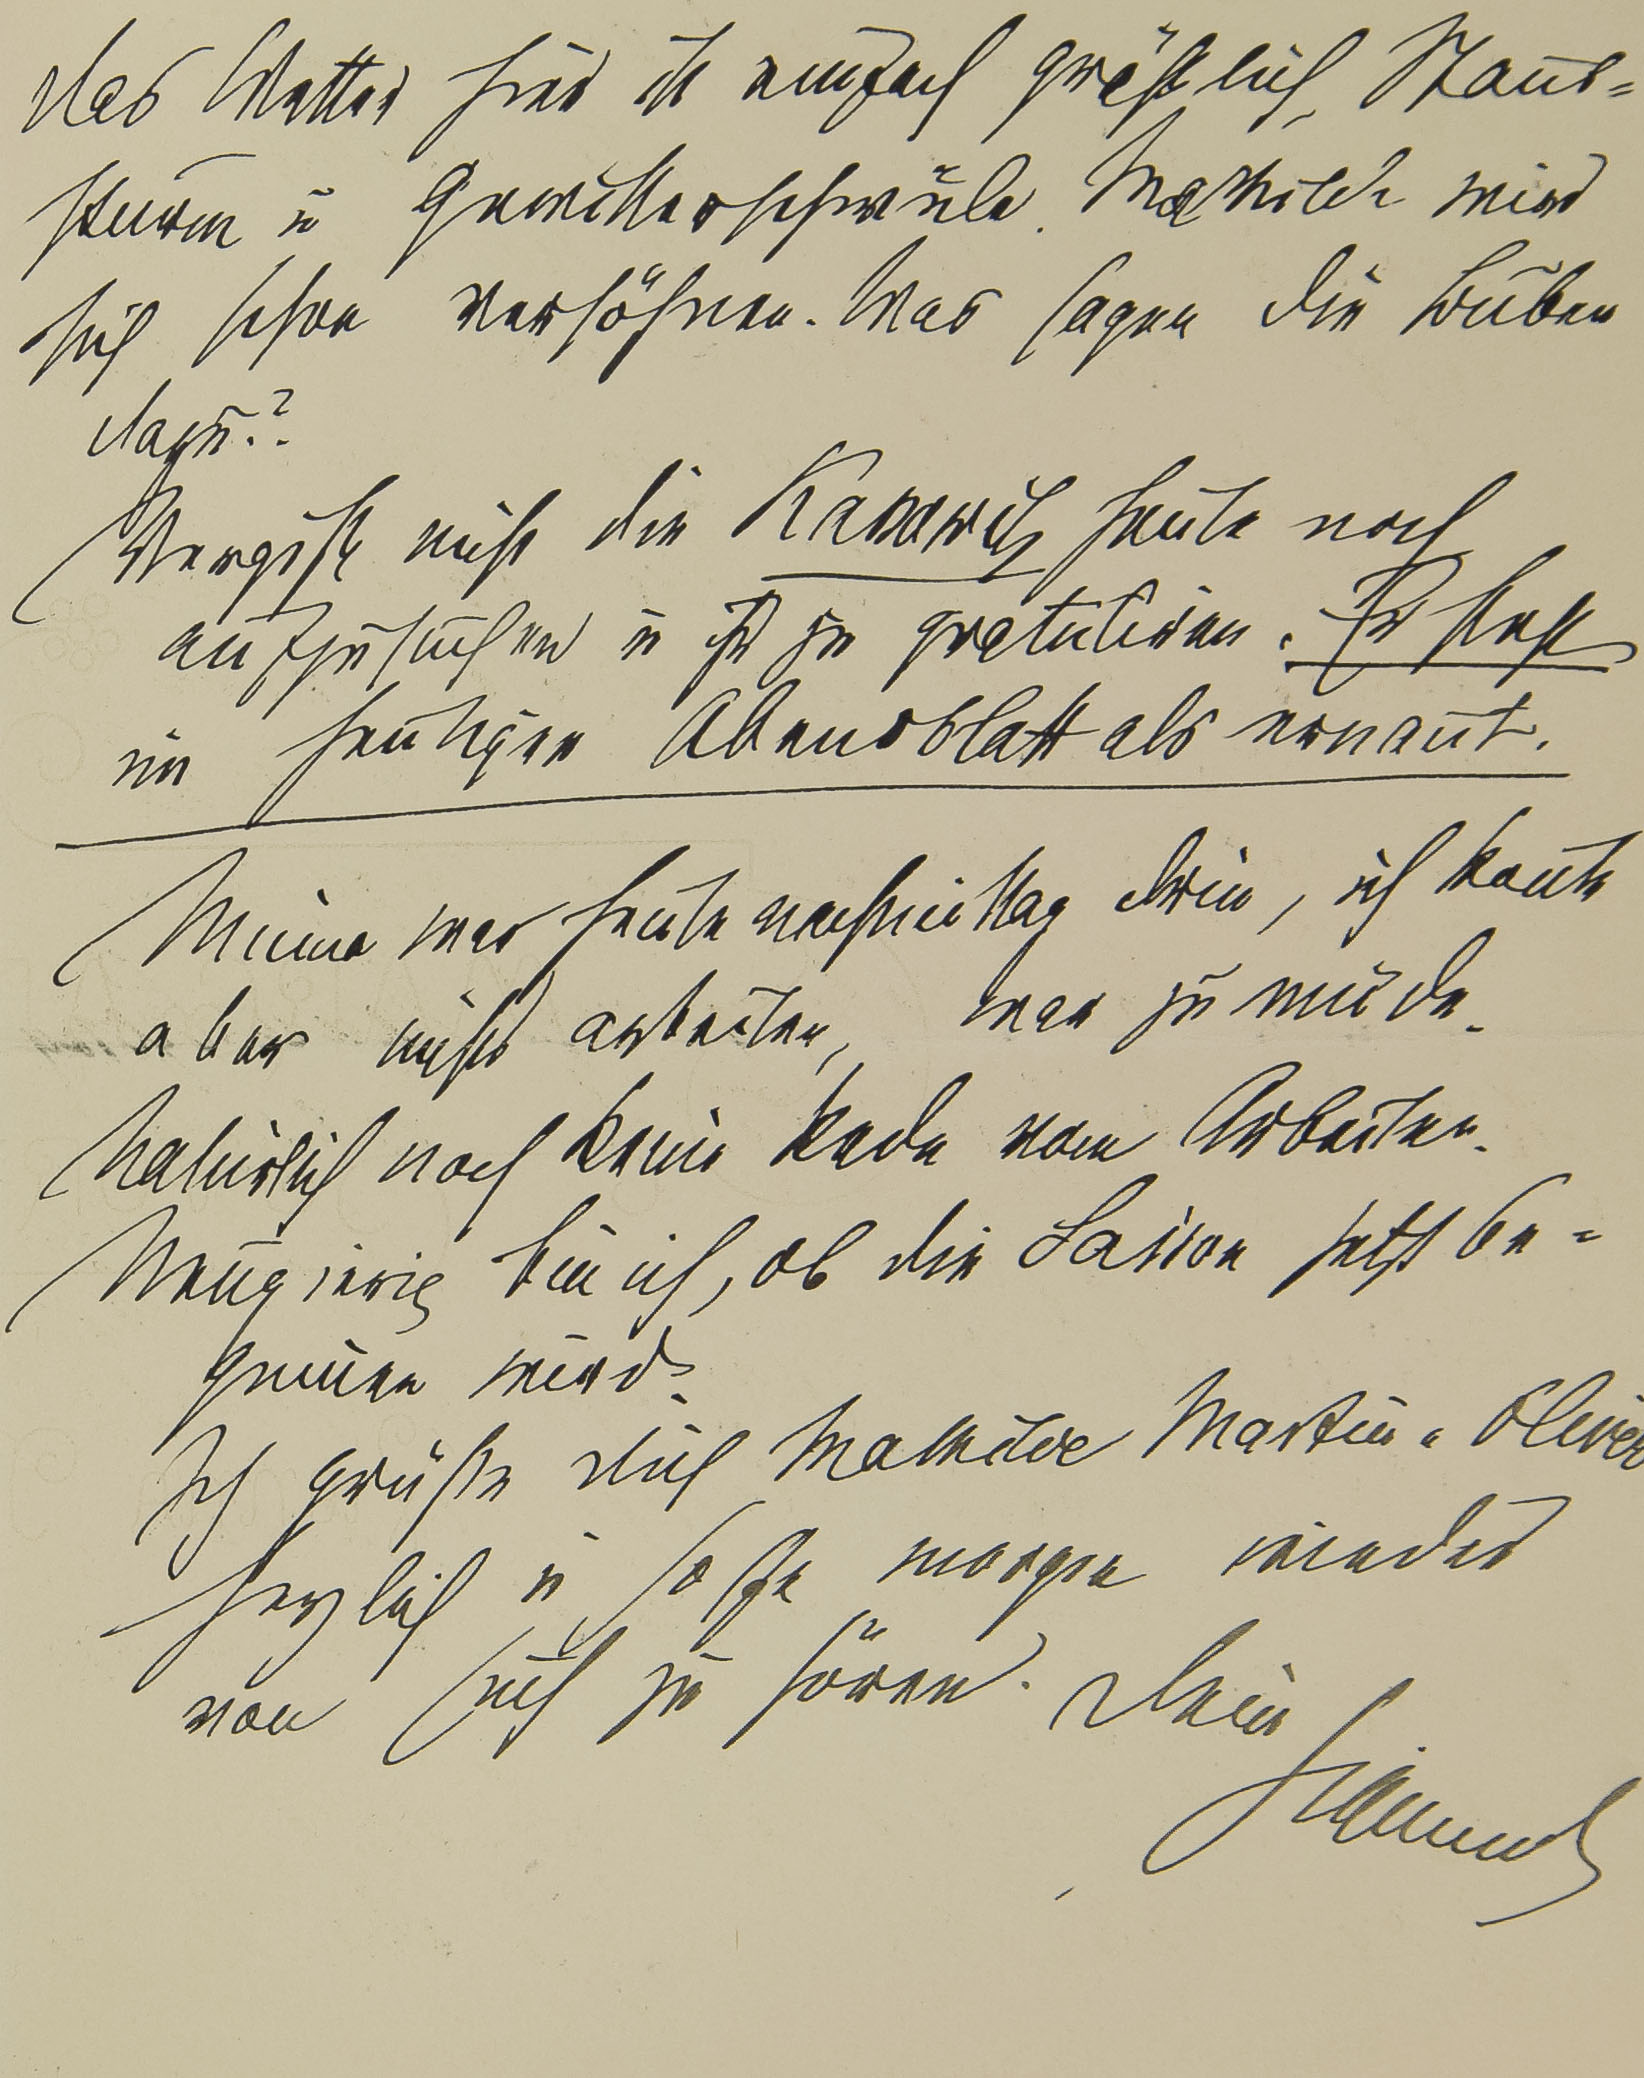 Das Wetter hier ist einfach gräßlich, Staub-
sturm u Gewitterschwüle. Mathilde wird
sich schon versöhnen. Was sagen die Buben
dazu??
Vergiß nicht die heute noch
aufzusuchen u ihr zu gratuliren. Er steht
im heutigen Abendblatt als ernañt.
Minna war heute nachmittag drin, ich koñte
aber nicht arbeiten, war zu müde.
Natürlich noch keine Rede vom Arbeiten.
Neugierig bin ich, ob die Saison jetzt be-
ginnen wird.
Ich grüße dich Mathilde Martin u Oliver
herzlich u hoffe morgen wieder
von euch zu hören. Dein
Sigmund